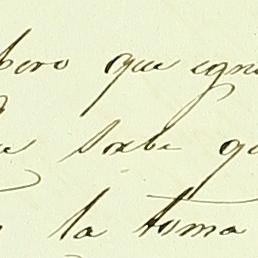 pero que igno
sabe qu
la toma